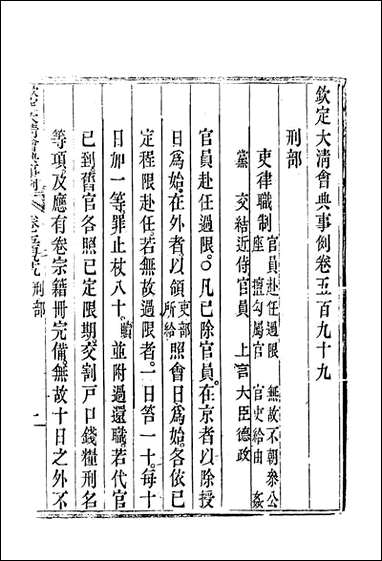 欽定大清會典事例卷五百九十九
刑部
吏律職制 官員赴任過限 無故不朝參公
座 擅勾屬官 官吏給由 姦
黨 交結近侍官員 上言大臣德政
官員赴任過限。○凡已除官員。在京者以除授
日爲始。在外者以領吏部所給照會日爲始。各依已
定程限赴任。若無故過限者。一日笞一十。每十
日加一等罪止杖八十。贖並附過還職。若代官
已到舊官各照已定限期。交割戶口錢糧刑名
等項。及應有卷宗籍冊完備。無故十日之外不
欽定大清會典事例 卷五百九十九 刑部 一